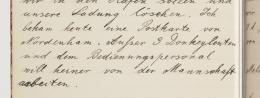 wir in den Hafen sollen und
unsere Ladung löschen. Ich
bekam heute eine Postkarte von
Nordenham. Außer 3 Donkeyleuten
und dem Bedienungspersonal
will keiner von der Mannschaft
arbeiten.